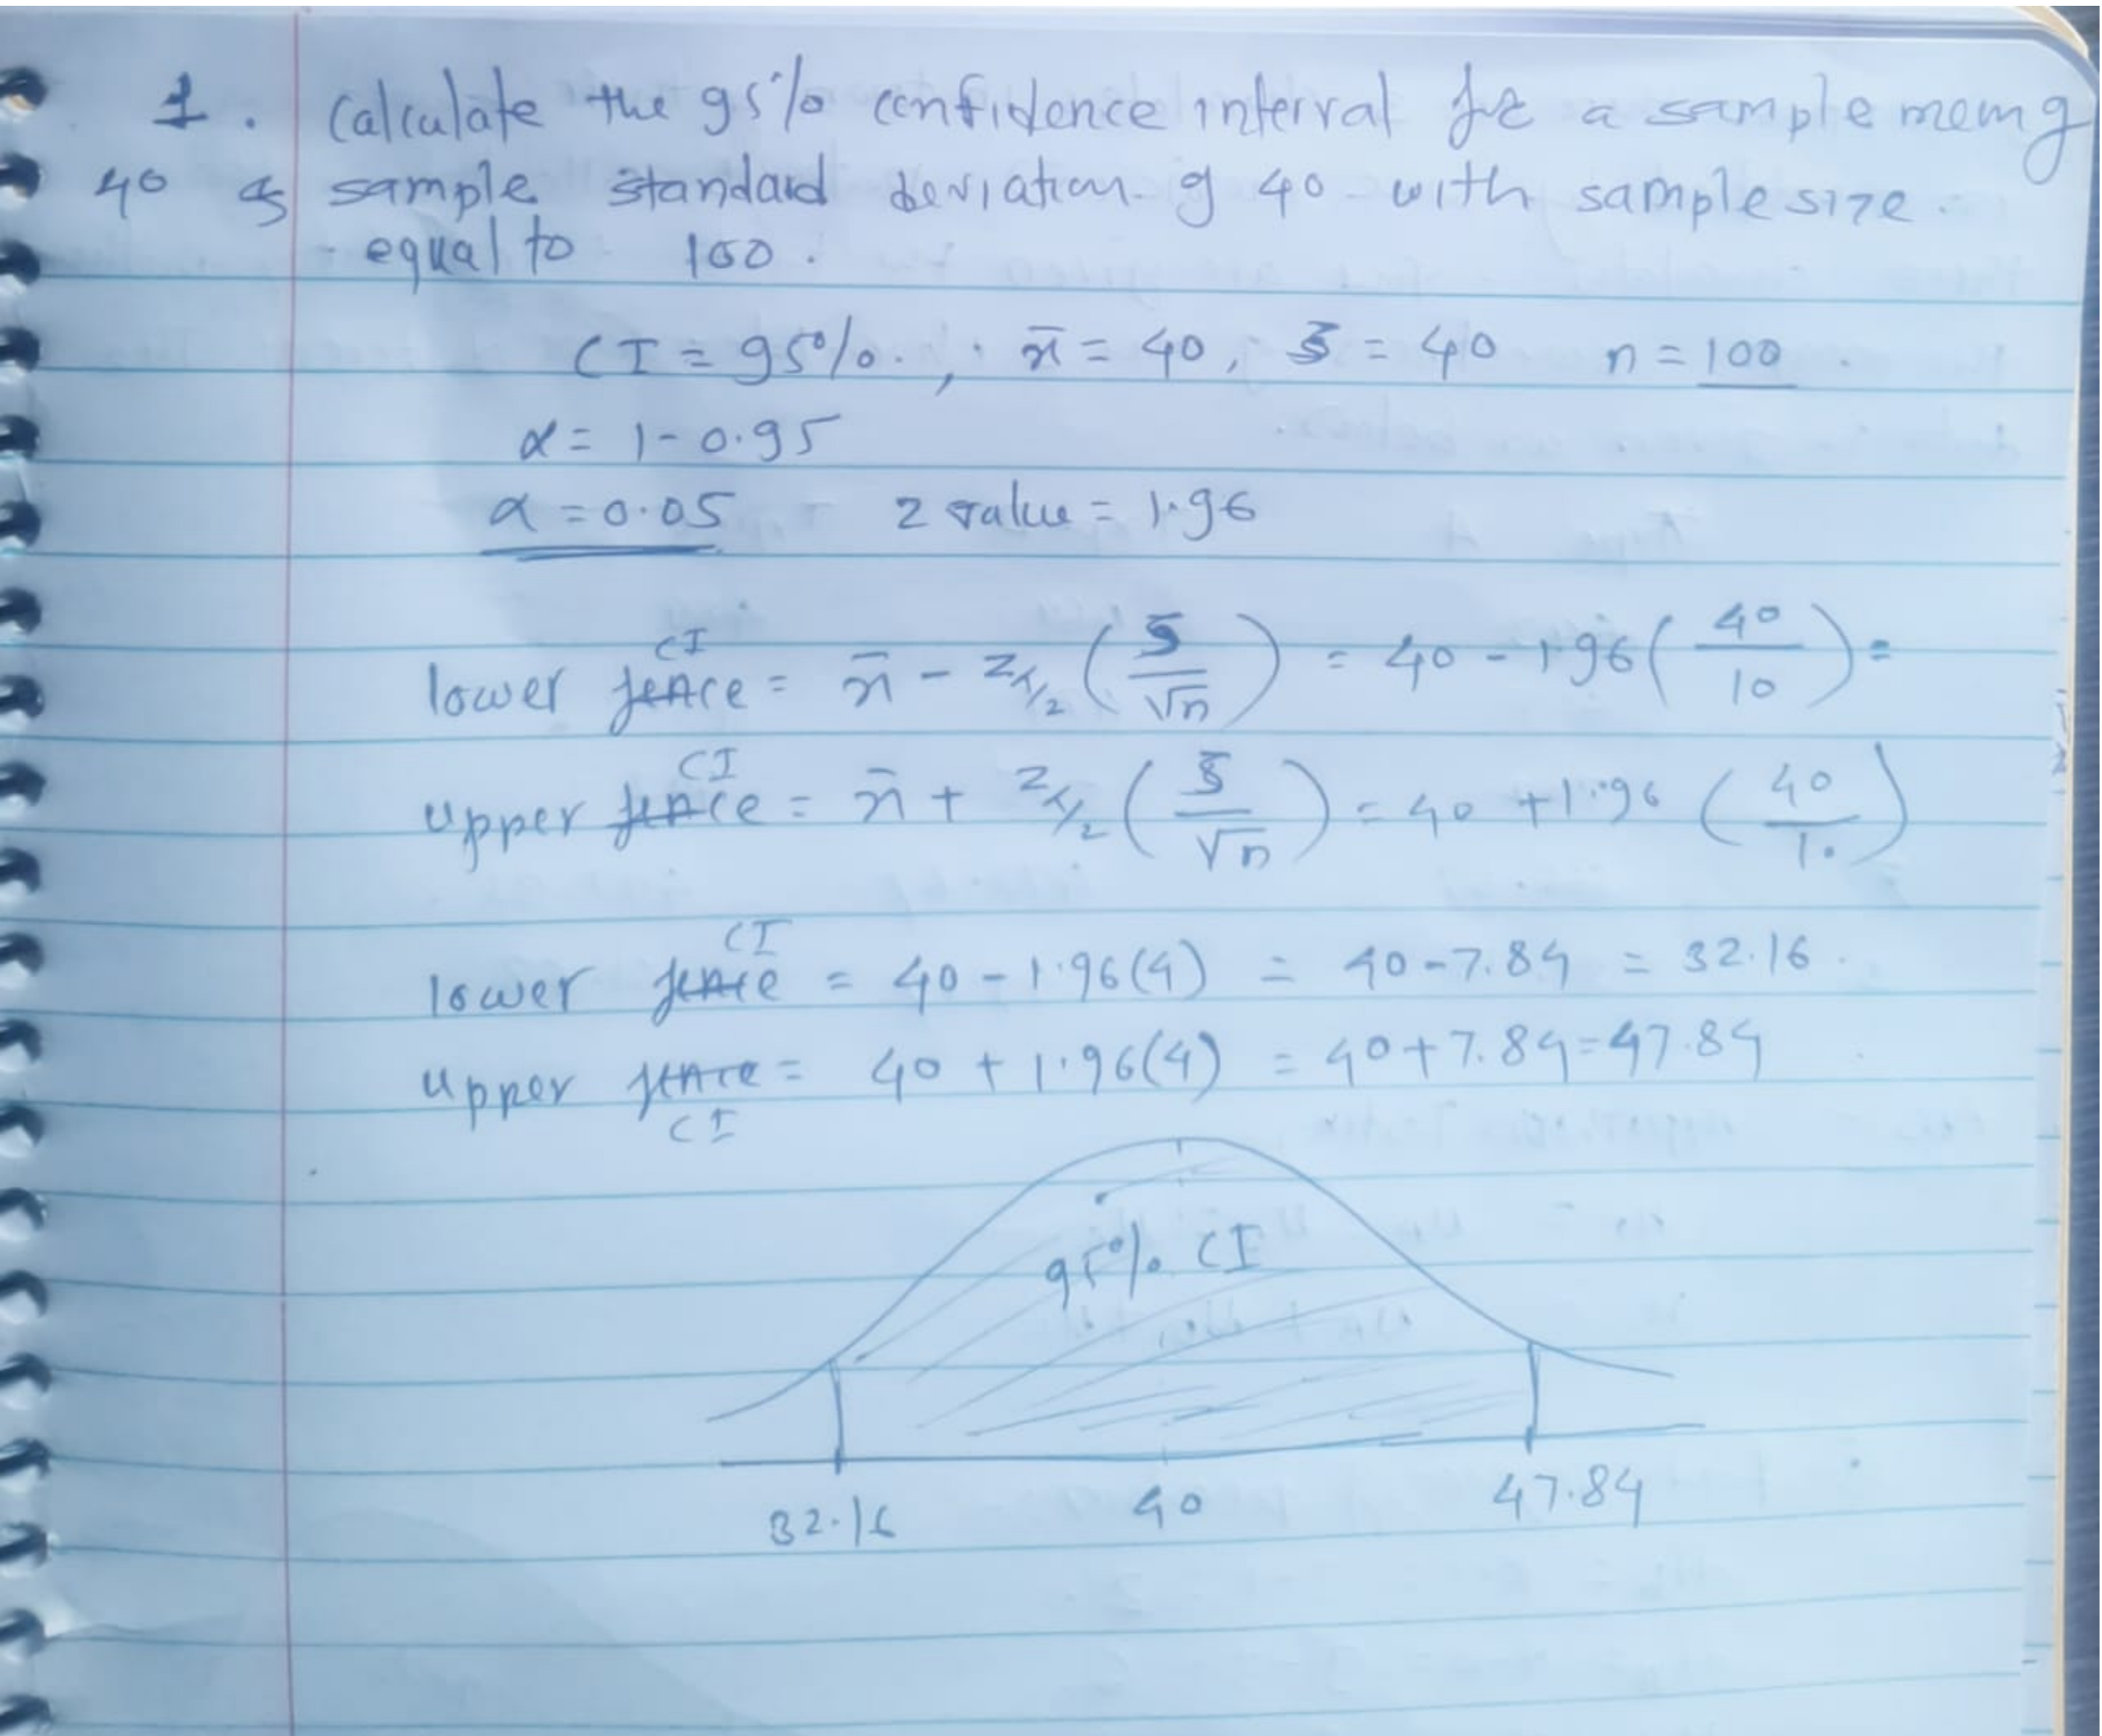 1. Calculate the 95% confidence interval for a sample mean of
40 & sample standard deviation of 40 with sample size.
equal to 100.
CI = 95%., x̄ = 40, s = 40 n = 100.
α = 1-0.95
α = 0.05 z value = 1.96
CI
lower fence = x̄ - zα/2 (s/√n) = 40 - 1.96 (40/10) =
CI
upper fence = x̄ + zα/2 (s/√n) = 40 + 1.96 (40/10)
CI
lower fence = 40 - 1.96(4) = 40-7.84 = 32.16.
upper fence = 40 + 1.96(4) = 40+7.84=47.84
CI
95% CI
32.16 40 47.84